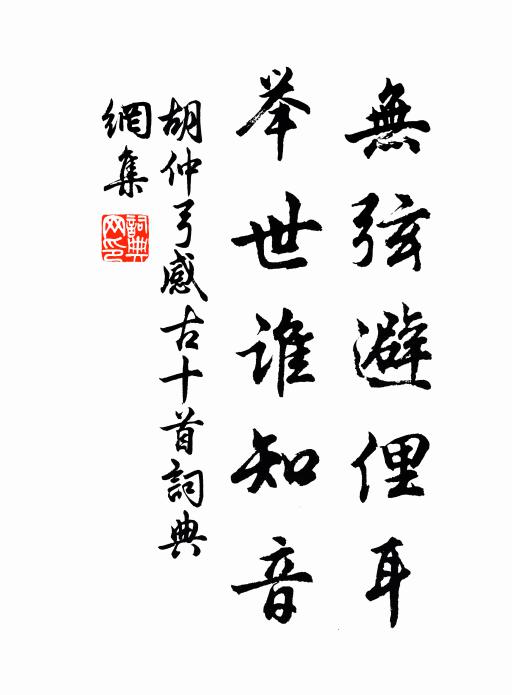 無弦避俚耳
举世谁知音
胡仲弓感古十首詞典
網集
詞典网印